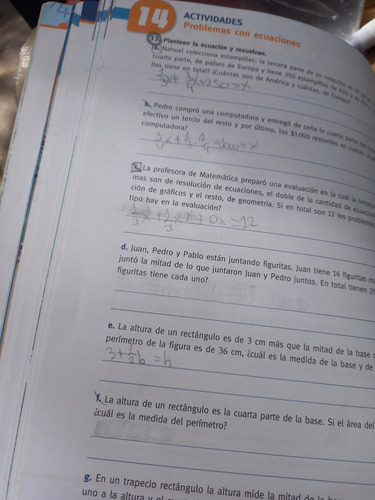 14
14
ACTIVIDADES
Problemas con ecuaciones
13. Planteen la ecuación y resuelvan.
a. Nahuel colecciona estampillas: la tercera parte de su
cuarta parte, de países de Europa y tiene 250 estampillas de Asia
llas tiene en total? ¿Cuántas son de América y cuántas, de Europa?
b. Pedro compró una computadora y entregó de seña la cuarta parte
efectivo un tercio del resto y por último, los $1000 restantes en
computadora?
c. La profesora de Matemática preparó una evaluación en la cual la
mas son de resolución de ecuaciones, el doble de la cantidad de
ción de gráficos y el resto, de geometría. Si en total son 12 los problemas
tipo hay en la evaluación?
= 12
d. Juan, Pedro y Pablo están juntando figuritas. Juan tiene 14 figuritas
juntó la mitad de lo que juntaron Juan y Pedro juntos. En total tienen
figuritas tiene cada uno?
e. La altura de un rectángulo es de 3 cm más que la mitad de la base
perímetro de la figura es de 36 cm, ¿cuál es la medida de la base y de
3+½b = h
f. La altura de un rectángulo es la cuarta parte de la base. Si el área del
¿cuál es la medida del perímetro?
g. En un trapecio rectángulo la altura mide la mitad de la
uno a la altura y el